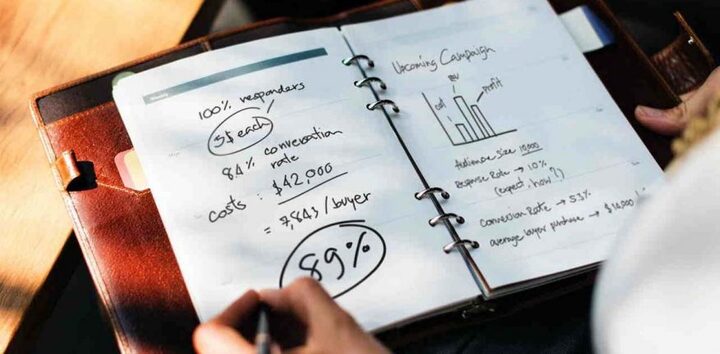 100% responders
5$ each
84% conversation
rate
costs : $42,000
= 7,843/buyer
89%
Upcoming Campaign
Profit
Audience size 10,000
Response Rate → 10%
(expect, how?)
Conversion Rate → 53%
average buyer purchase → $14,000